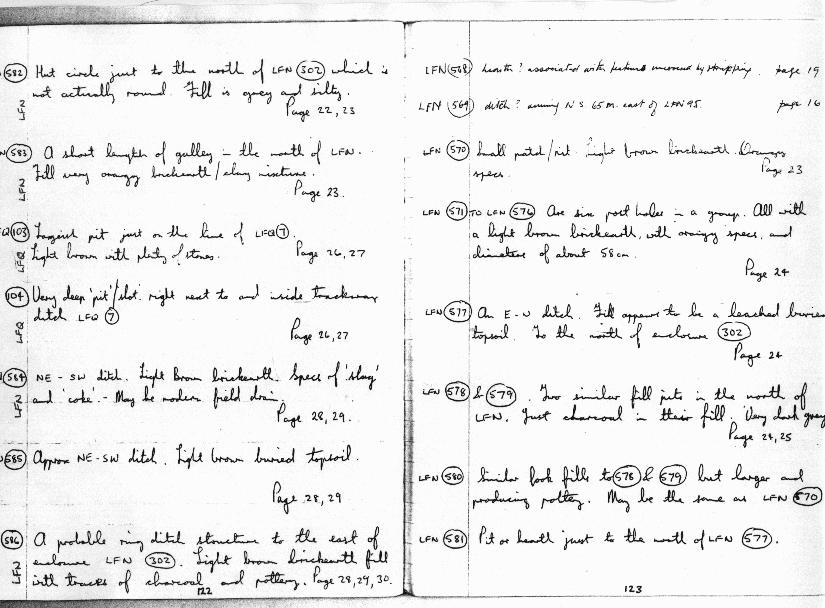 582 Hut circle just to the north of LFN 302 which is
LFN not actually round. Fill is grey and silty.
Page 22, 23
583 A short length of gulley in the north of LFN.
LFN Fill very orangy brickearth/clay mixture.
Page 23.
103 Largest pit just on the line of LFQ 7.
LFQ Light brown with plenty of stones. Page 26, 27
104 Very deep 'pit'/slot. right next to and inside trackway
LFQ ditch LFQ 7
Page 26, 27
584 NE - SW ditch. Light Brown brickearth. Specs of 'slag'
LFN and 'coke'. - May be modern field drain.
Page 28, 29.
585 Approx NE-SW ditch. Light brown buried topsoil.
Page 28, 29
586 A probable ring ditch structure to the east of
LFN enclosure LFN 302. Light brown brickearth fill
with traces of charcoal and pottery. Page 28, 29, 30.
122
LFN 568 hearth? associated with features uncovered by stripping. page 19
LFN 569 ditch? running N S 65m. east of LFN 95. page 16
LFN 570 Small patch/pit. Light brown brickearth. Orangy
specs. Page 23
LFN 571 TO LFN 576 Are six post holes in a group. All with
a light brown brickearth, with orangy specs, and
diameters of about 58cm.
Page 24
LFN 577 An E-W ditch. Fill appears to be a leached buried
topsoil. To the north of enclosure 302
Page 24
LFN 578 & 579. Two similar fill pits in the north of
LFN. Just charcoal in their fill. Very dark grey
Page 24, 25
LFN 580 Similar fills to 578 & 579 but larger and
producing pottery. May be the same as LFN 570
LFN 581 Pit or hearth just to the north of LFN 577.
123